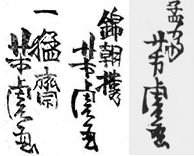 孟斎
芳虎画
錦朝樓
芳虎画
一猛齋
芳虎画